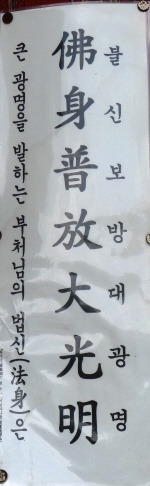 불신보방대광명
佛身普放大光明
큰 광명을 발하는 부처님의 법신(法身)은